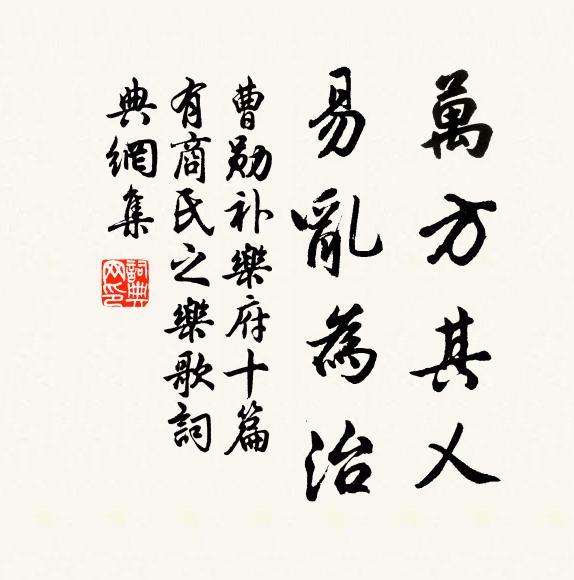 萬方其乂
易亂為治
曹勛补樂府十篇
有商氏之樂歌詞
典網集
詞典網印